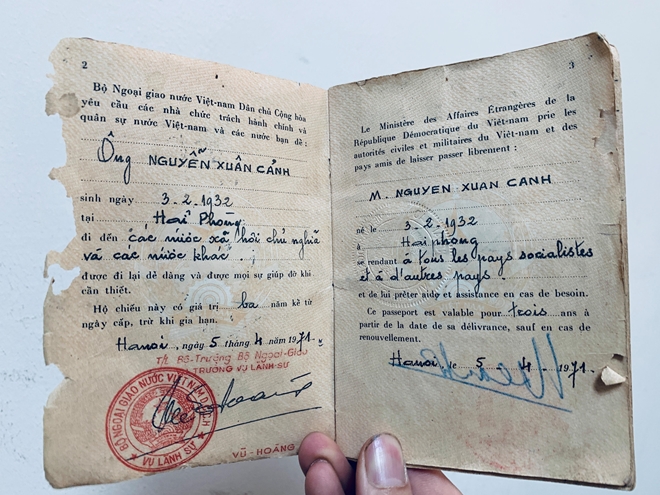 2
Bộ Ngoại giao nước Việt-nam Dân chủ Cộng hòa
yêu cầu các nhà chức trách hành chính và
quân sự nước Việt-nam và các nước bạn để :
Ông NGUYỄN XUÂN CẢNH
sinh ngày 3-2-1932
tại Hải Phòng
đi đến các nước xã hội chủ nghĩa
và các nước khác.
được đi lại dễ dàng và được mọi sự giúp đỡ khi
cần thiết.
Hộ chiếu này có giá trị ba năm kể từ
ngày cấp, trừ khi gia hạn.
Hanoi, ngày 5 tháng 4 năm 1971
T/L Bộ-Trưởng Bộ Ngoại-Giao
TRƯỞNG VỤ LÃNH-SỰ
BỘ NGOẠI GIAO NƯỚC VIỆT NAM D.C.C.H
VỤ LÃNH SỰ
VŨ-HOÀNG
3
Le Ministère des Affaires Étrangères de la
République Démocratique du Việt-nam prie les
autorités civiles et militaires du Việt-nam et des
pays amis de laisser passer librement :
M. NGUYEN XUAN CANH
né le 3-2-1932
à Hai phong
se rendant à tous les pays socialistes
et à d'autres pays.
et de lui prêter aide et assistance en cas de besoin.
Ce passeport est valable pour trois ans à
partir de la date de sa délivrance, sauf en cas de
renouvellement.
Hanoi, le 5-4-1971